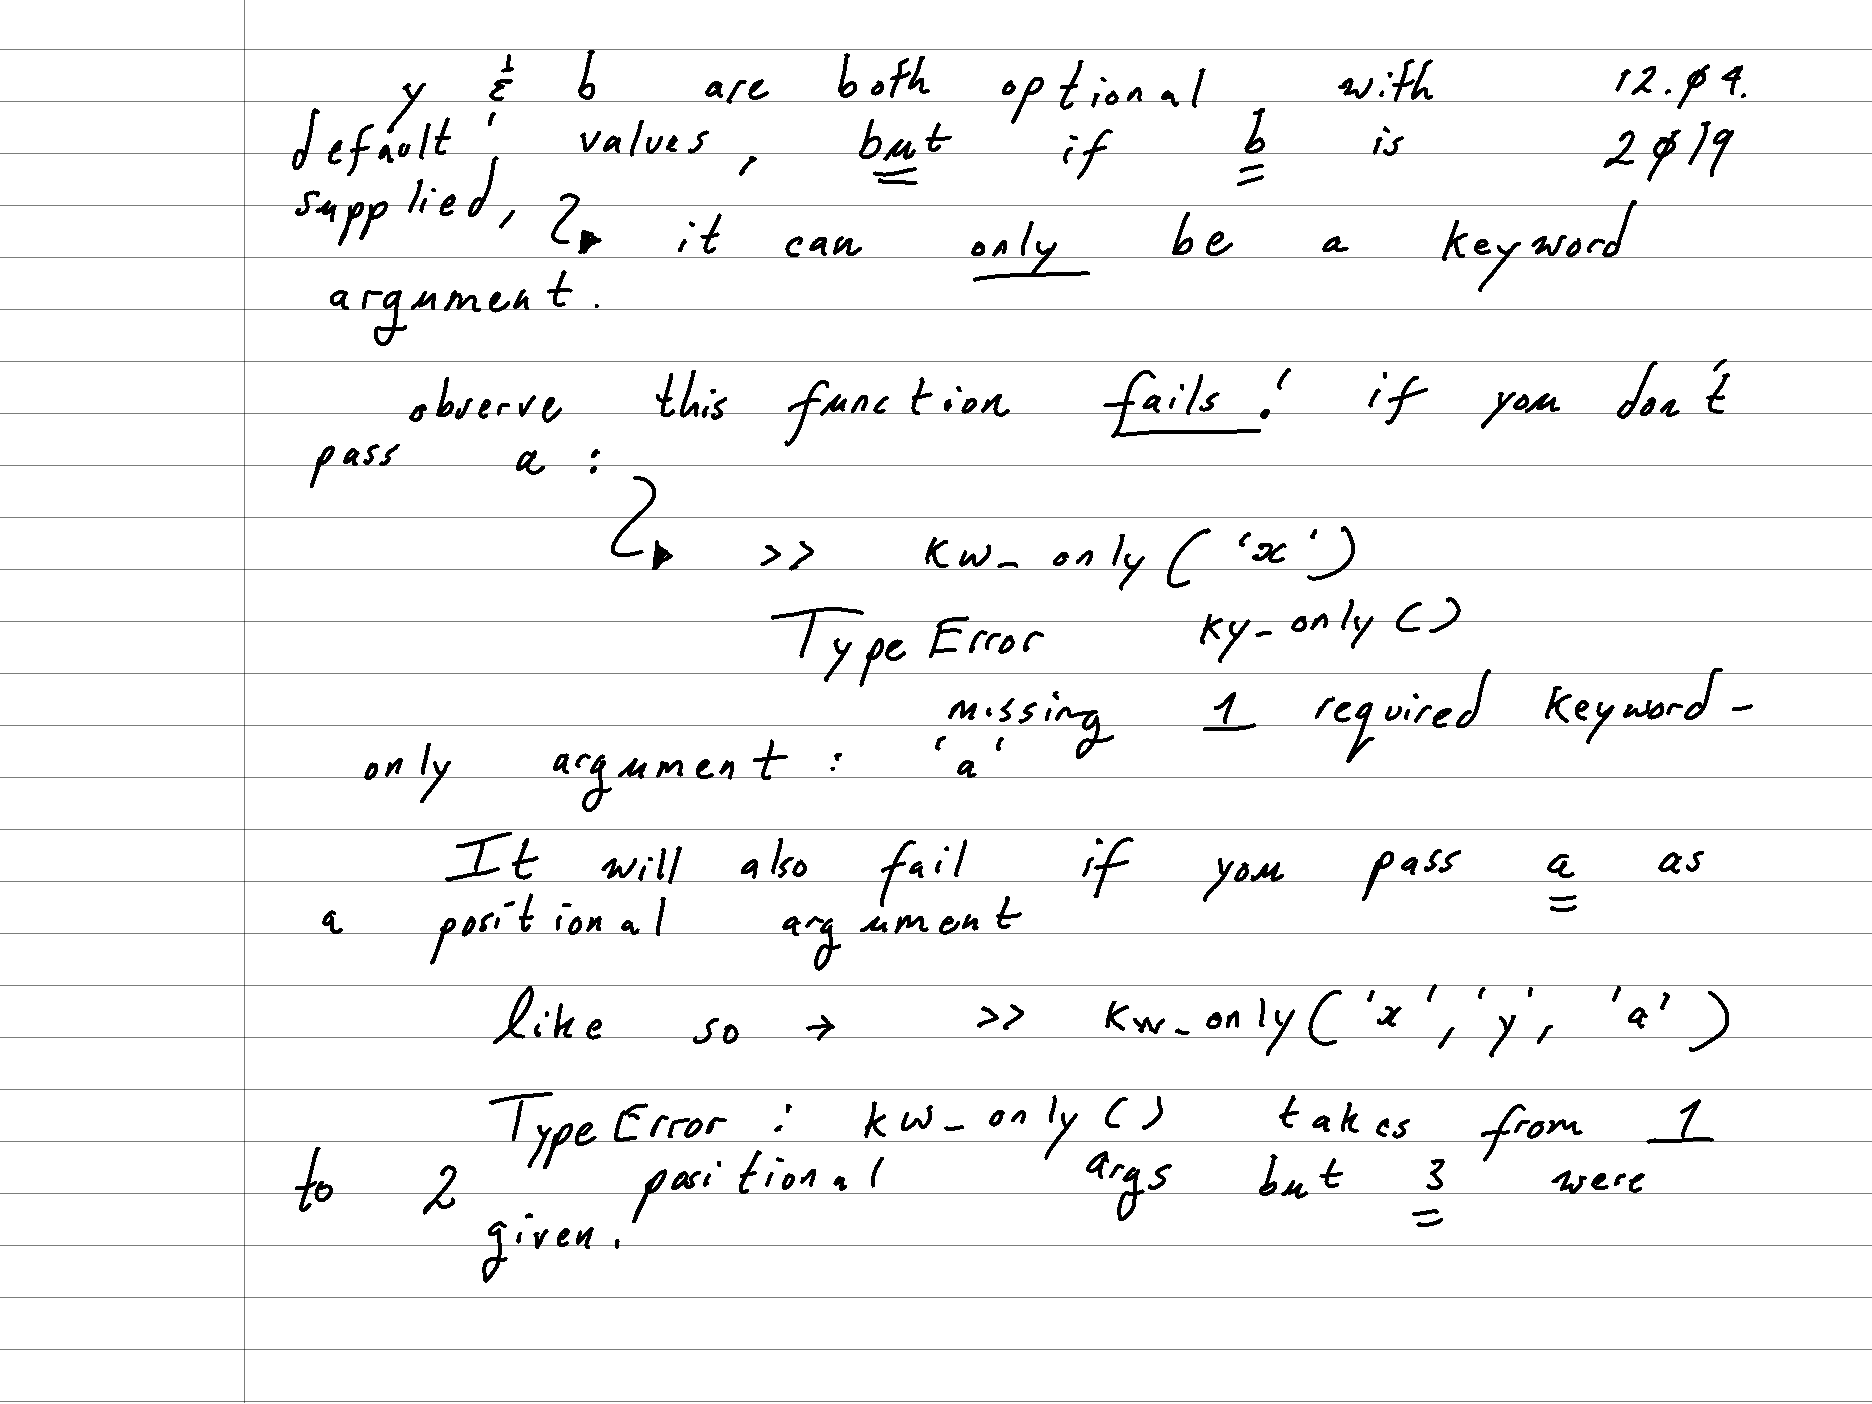 y & b are both optional with 12.04.
default values, but if b is 2019
supplied, it can only be a keyword
argument.
observe this function fails! if you don't
pass a :
>> kw_only('x')
TypeError ky_only()
missing 1 required keyword-
only argument : 'a'
It will also fail if you pass a as
a positional argument
like so → >> kw_only('x', 'y', 'a')
TypeError : kw_only() takes from 1
to 2 positional args but 3 were
given.